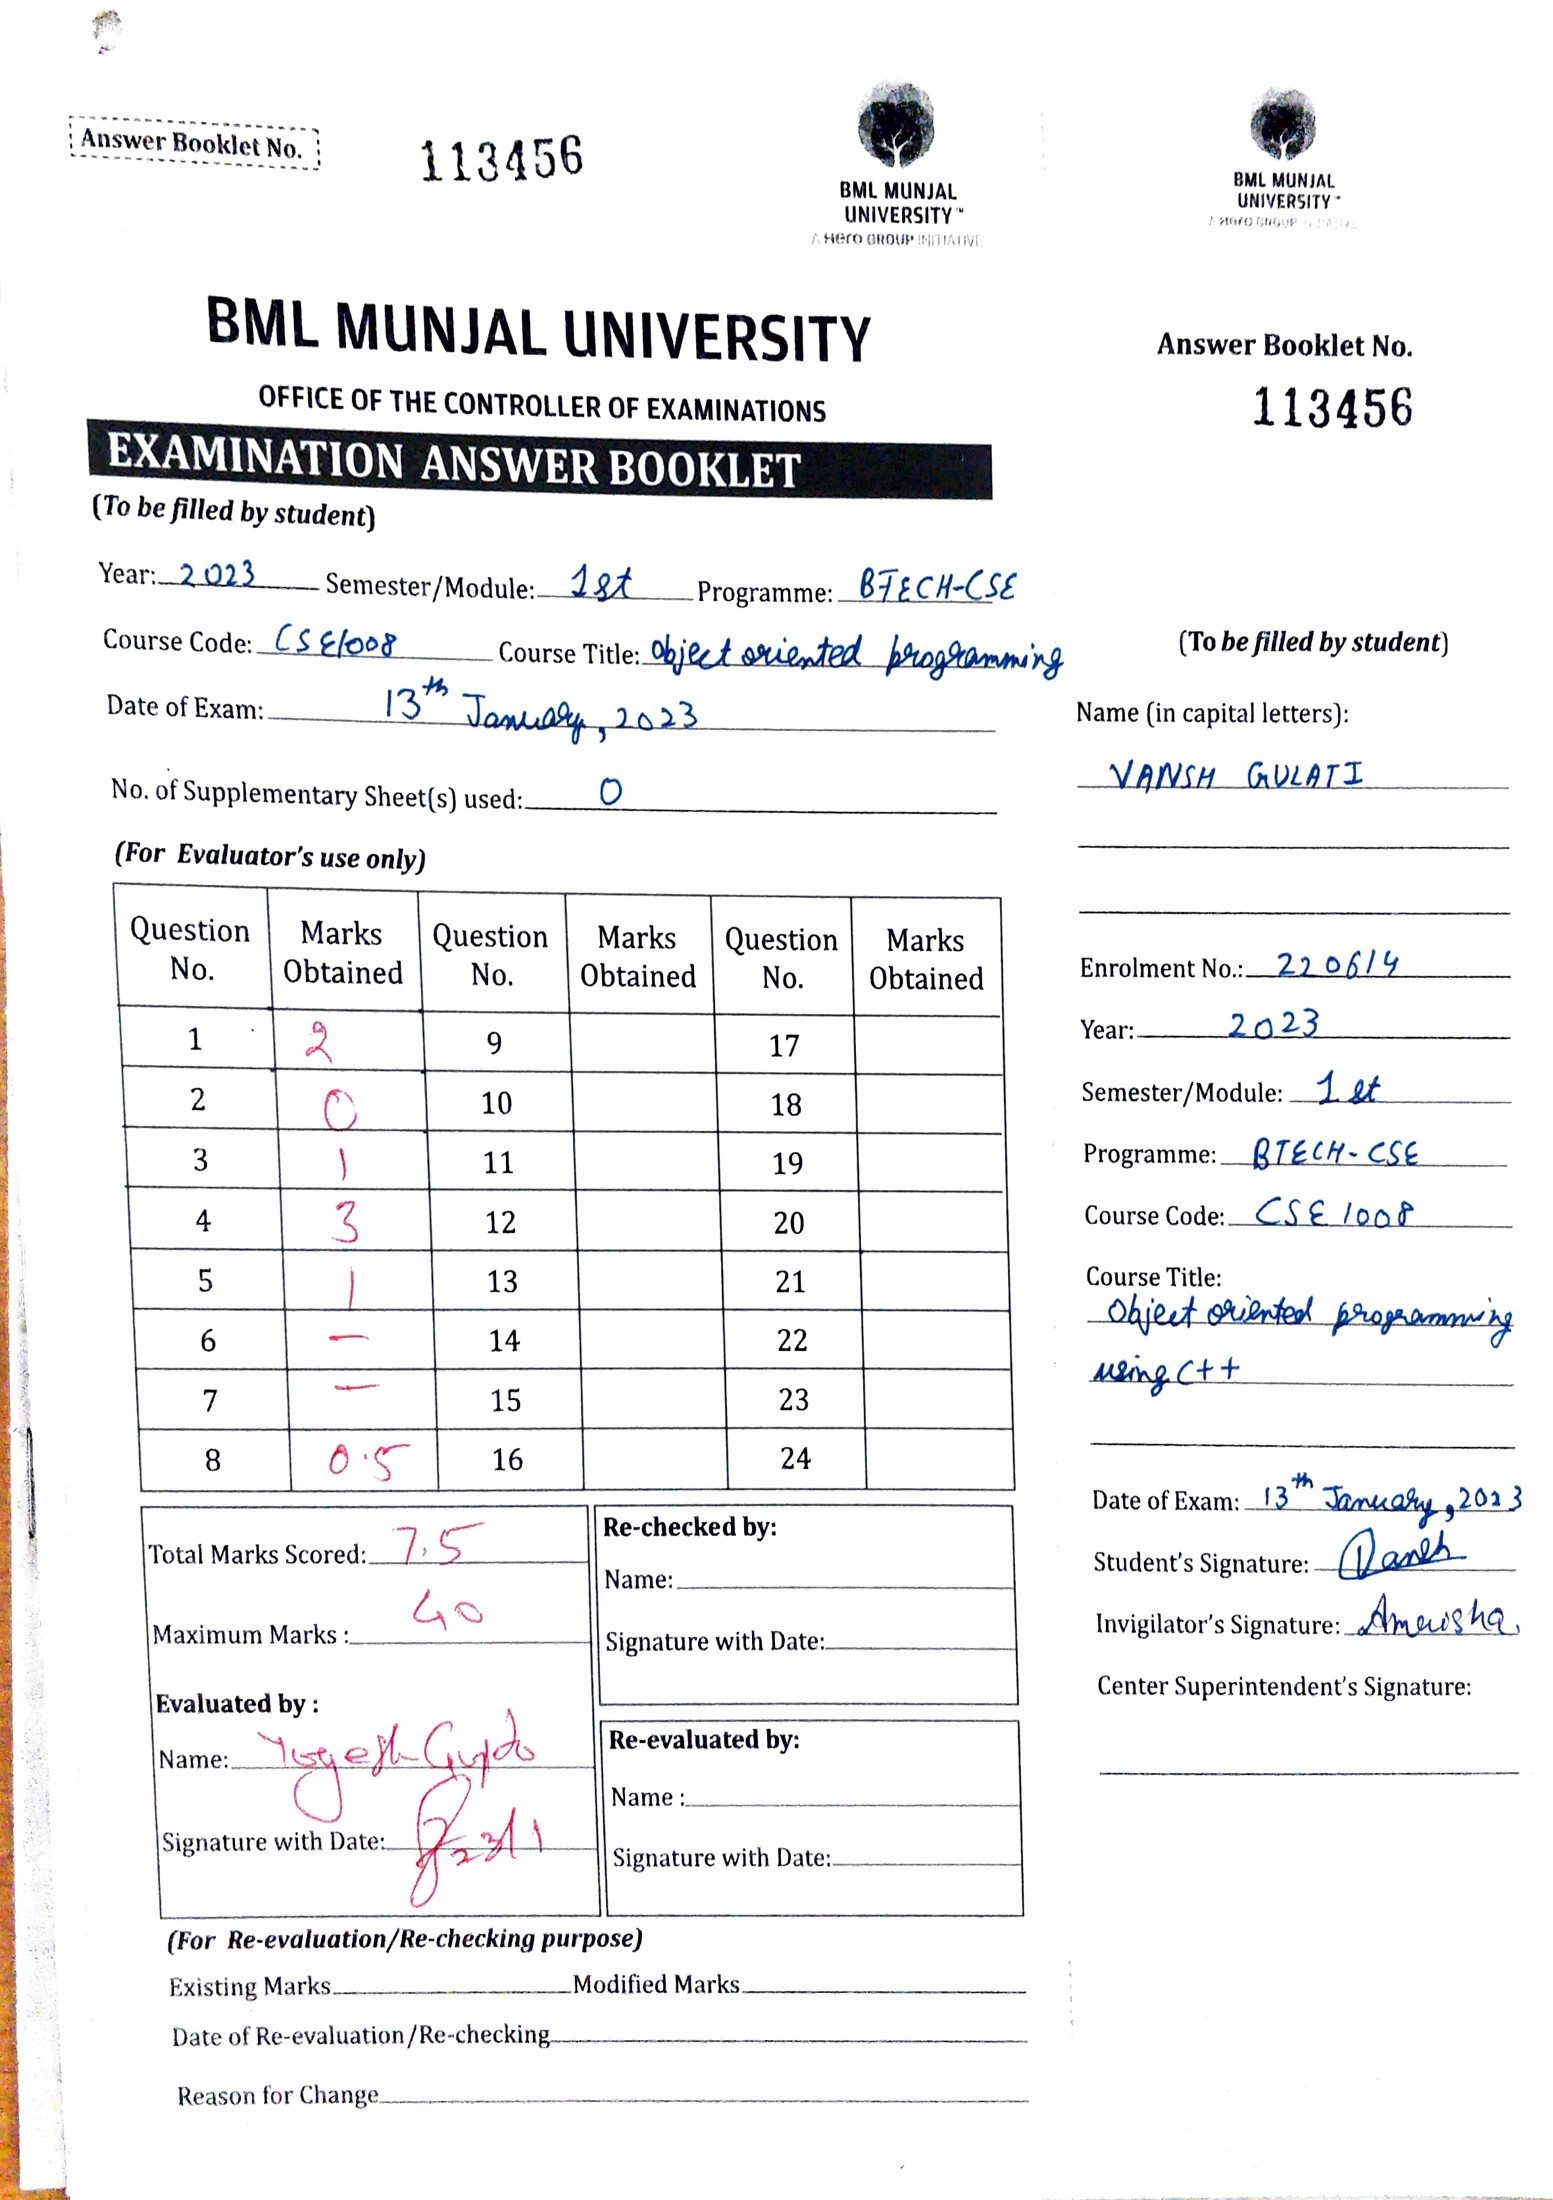 Answer Booklet No. 113456
BML MUNJAL
UNIVERSITY™
A Hero GROUP INITIATIVE
BML MUNJAL UNIVERSITY
OFFICE OF THE CONTROLLER OF EXAMINATIONS
EXAMINATION ANSWER BOOKLET
(To be filled by student)
Year: 2023 Semester/Module: 1st Programme: BTECH-CSE
Course Code: CSE1008 Course Title: Object oriented programming
Date of Exam: 13th January, 2023
No. of Supplementary Sheet(s) used: 0
(For Evaluator's use only)
Question No. Marks Obtained Question No. Marks Obtained Question No. Marks Obtained
1 2 9 17
2 0 10 18
3 1 11 19
4 3 12 20
5 1 13 21
6 – 14 22
7 – 15 23
8 0.5 16 24
Total Marks Scored: 7.5
Maximum Marks : 40
Evaluated by :
Name: Yogesh Gupta
Signature with Date: 23/1
Re-checked by:
Name:
Signature with Date:
Re-evaluated by:
Name :
Signature with Date:
(For Re-evaluation/Re-checking purpose)
Existing Marks Modified Marks
Date of Re-evaluation/Re-checking
Reason for Change
BML MUNJAL
UNIVERSITY™
A Hero GROUP INITIATIVE
Answer Booklet No.
113456
(To be filled by student)
Name (in capital letters):
VANSH GULATI
Enrolment No.: 220614
Year: 2023
Semester/Module: 1st
Programme: BTECH-CSE
Course Code: CSE1008
Course Title:
Object oriented programming
using C++
Date of Exam: 13th January, 2023
Student's Signature: Vansh
Invigilator's Signature:
Center Superintendent's Signature: